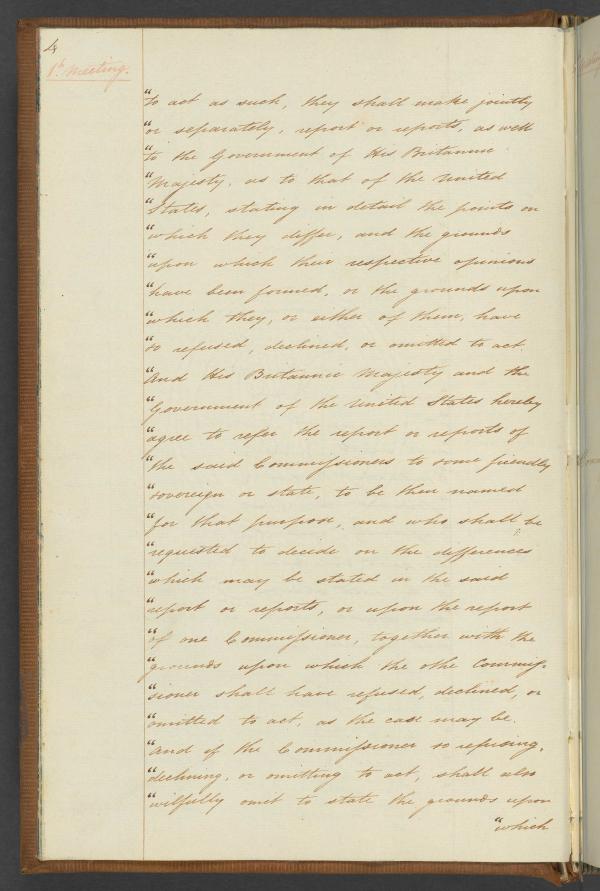 4
1st Meeting.
"to act as such, they shall make jointly
"or separately, report or reports, as well
"to the Government of His Britannic
"Majesty, as to that of the United
"States, stating in detail the points on
"which they differ, and the grounds
"upon which their respective opinions
"have been formed, or the grounds upon
"which they, or either of them, have
"so refused, declined, or omitted to act.
"And His Britannic Majesty and the
"Government of the United States hereby
"agree to refer the report or reports of
"the said Commissioners to some friendly
"sovereign or state, to be then named
"for that purpose, and who shall be
"requested to decide on the differences
"which may be stated in the said
"report or reports, or upon the report
"of one Commissioner, together with the
"grounds upon which the othe Commis-
"sioner shall have refused, declined, or
"omitted to act, as the case may be.
"And if the Commissioner so refusing,
"declining, or omitting to act, shall also
"wilfully omit to state the grounds upon
"which